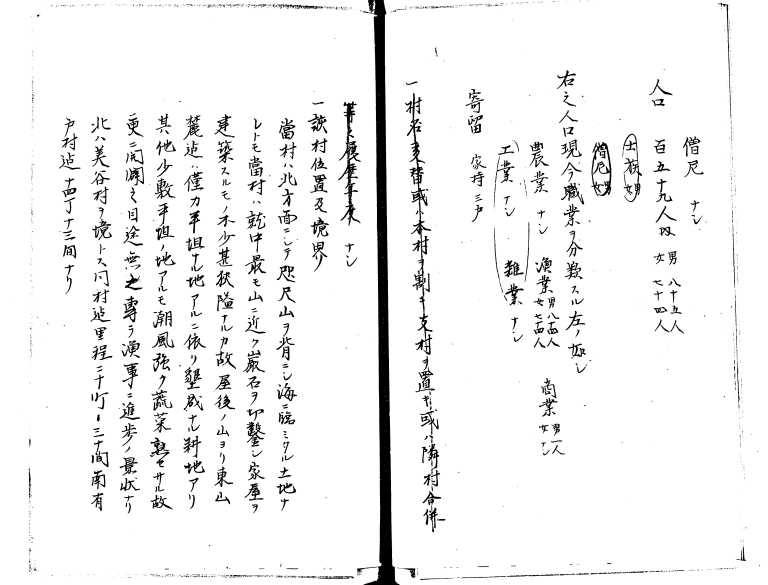 僧尼 ナシ
人口 百五十九人内 男 八十五人 女 七十四人
士族 男女
僧尼 男女
右之人口現今職業ヲ分類スル左ノ如シ
農業 ナシ 漁業 男八四人 女七四人 商業 男一人 女ナシ
工業 ナシ 雑業 ナシ
寄留 家持三戸
一村名更替或ハ本村ヲ割キ支村ヲ置キ或ハ隣村合併
等之履歴年度 ナシ
一該村位置及境界
當村ハ北方面ニシテ咫尺山ヲ背ニシ海ニ臨ミタル土地ナ
レトモ當村ハ就中最モ山ニ近ク巌石ヲ切鑿シ家屋ヲ
建築スルモ不少甚狭隘ナルカ故屋後ノ山ヨリ東山
麓迠ハ僅カ平坦ナル地アルニ依リ墾成ナル耕地アリ
其他少敷平坦ノ地アルモ潮風強ク蔬菜熟セサル故
更ニ開墾之目途無之専ラ漁事ニ進歩ノ景状ナリ
北ハ美谷村ヲ境トス同村迠里程二十町ト三十間南有
戸村迠十四丁十三間ナリ